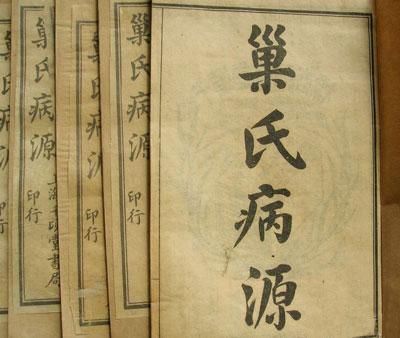 巢氏病源
巢氏病源
印行
巢氏病源
印行
巢氏病源
上海千頃堂書局
印行
巢氏病源